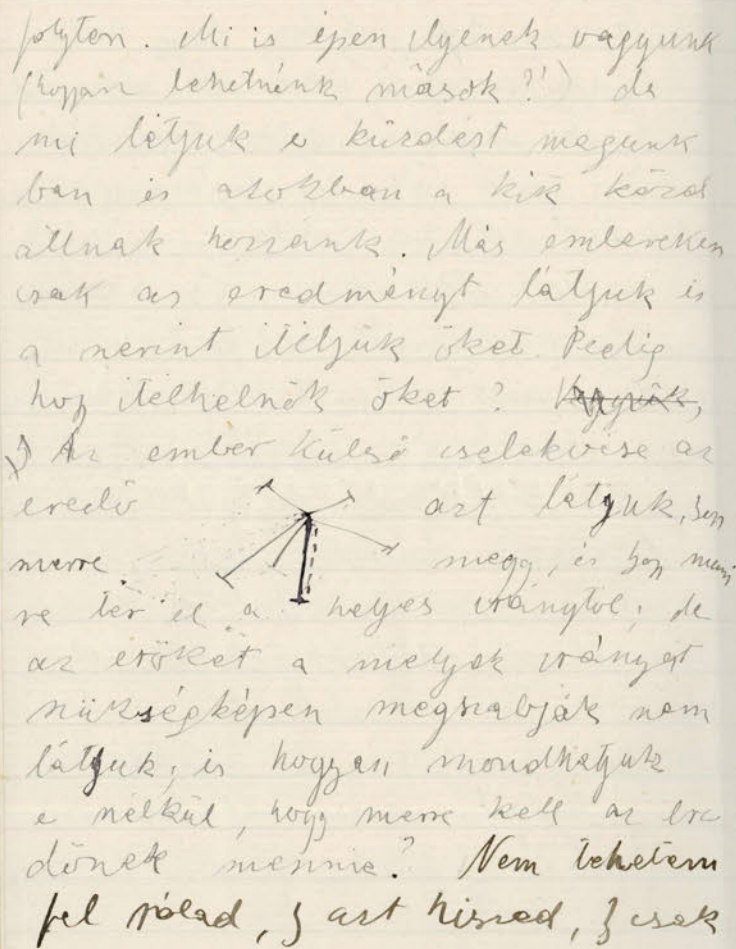 folyton. Mi is épen ilyenek vagyunk
(hogyan lehetnénk mások?!) de
mi látjuk e küzdést magunk
ban és azokban a kik közel
állnak hozzánk. Más embereken
csak az eredményt látjuk és
a szerint itéljük őket. Pedig
hogy itélhetnők őket?
Az ember külső cselekvése az
eredő azt látjuk, hogy
merre megy, és hogy meny
re tér el a helyes iránytól; de
az erőket a melyek irányát
szükségképen megszabják nem
látjuk; és hogyan mondhatjuk
e nélkül, hogy merre kell az ere
dőnek mennie? Nem tehetem
fel rólad, h azt hiszed, h csak